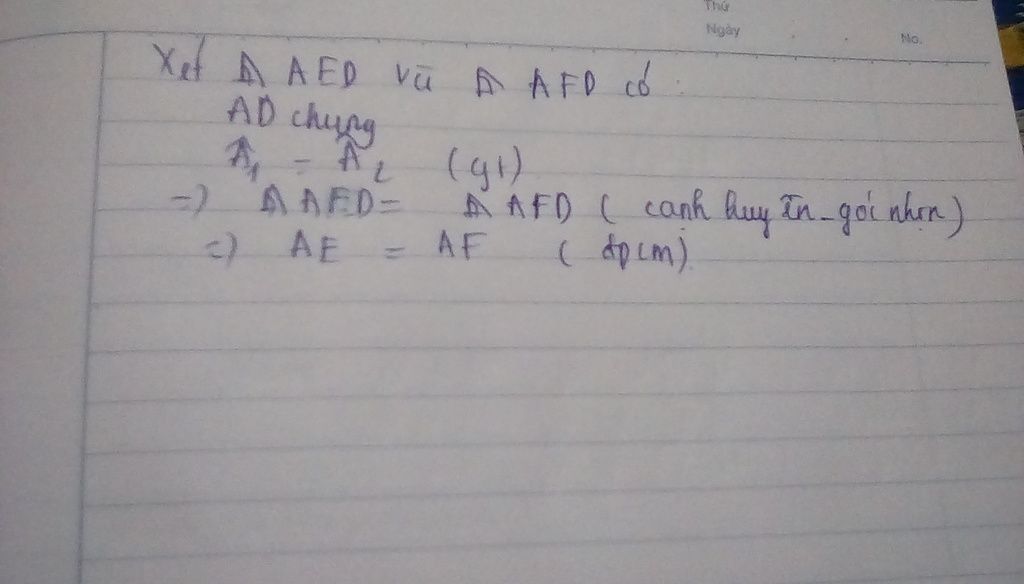 Thứ
Ngày
No.
Xét ⊿ AED và ⊿ AFD có :
AD chung
Â₁ = Â₂ (gt)
=> ⊿ AED = ⊿ AFD ( cạnh huyền - góc nhọn )
=> AE = AF ( đpcm )